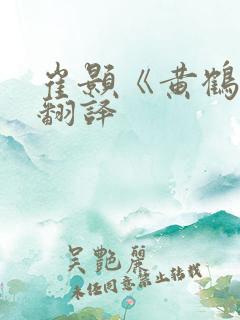 崔颢《黄鹤
翻译
吴艳丽
未经同意禁止转载